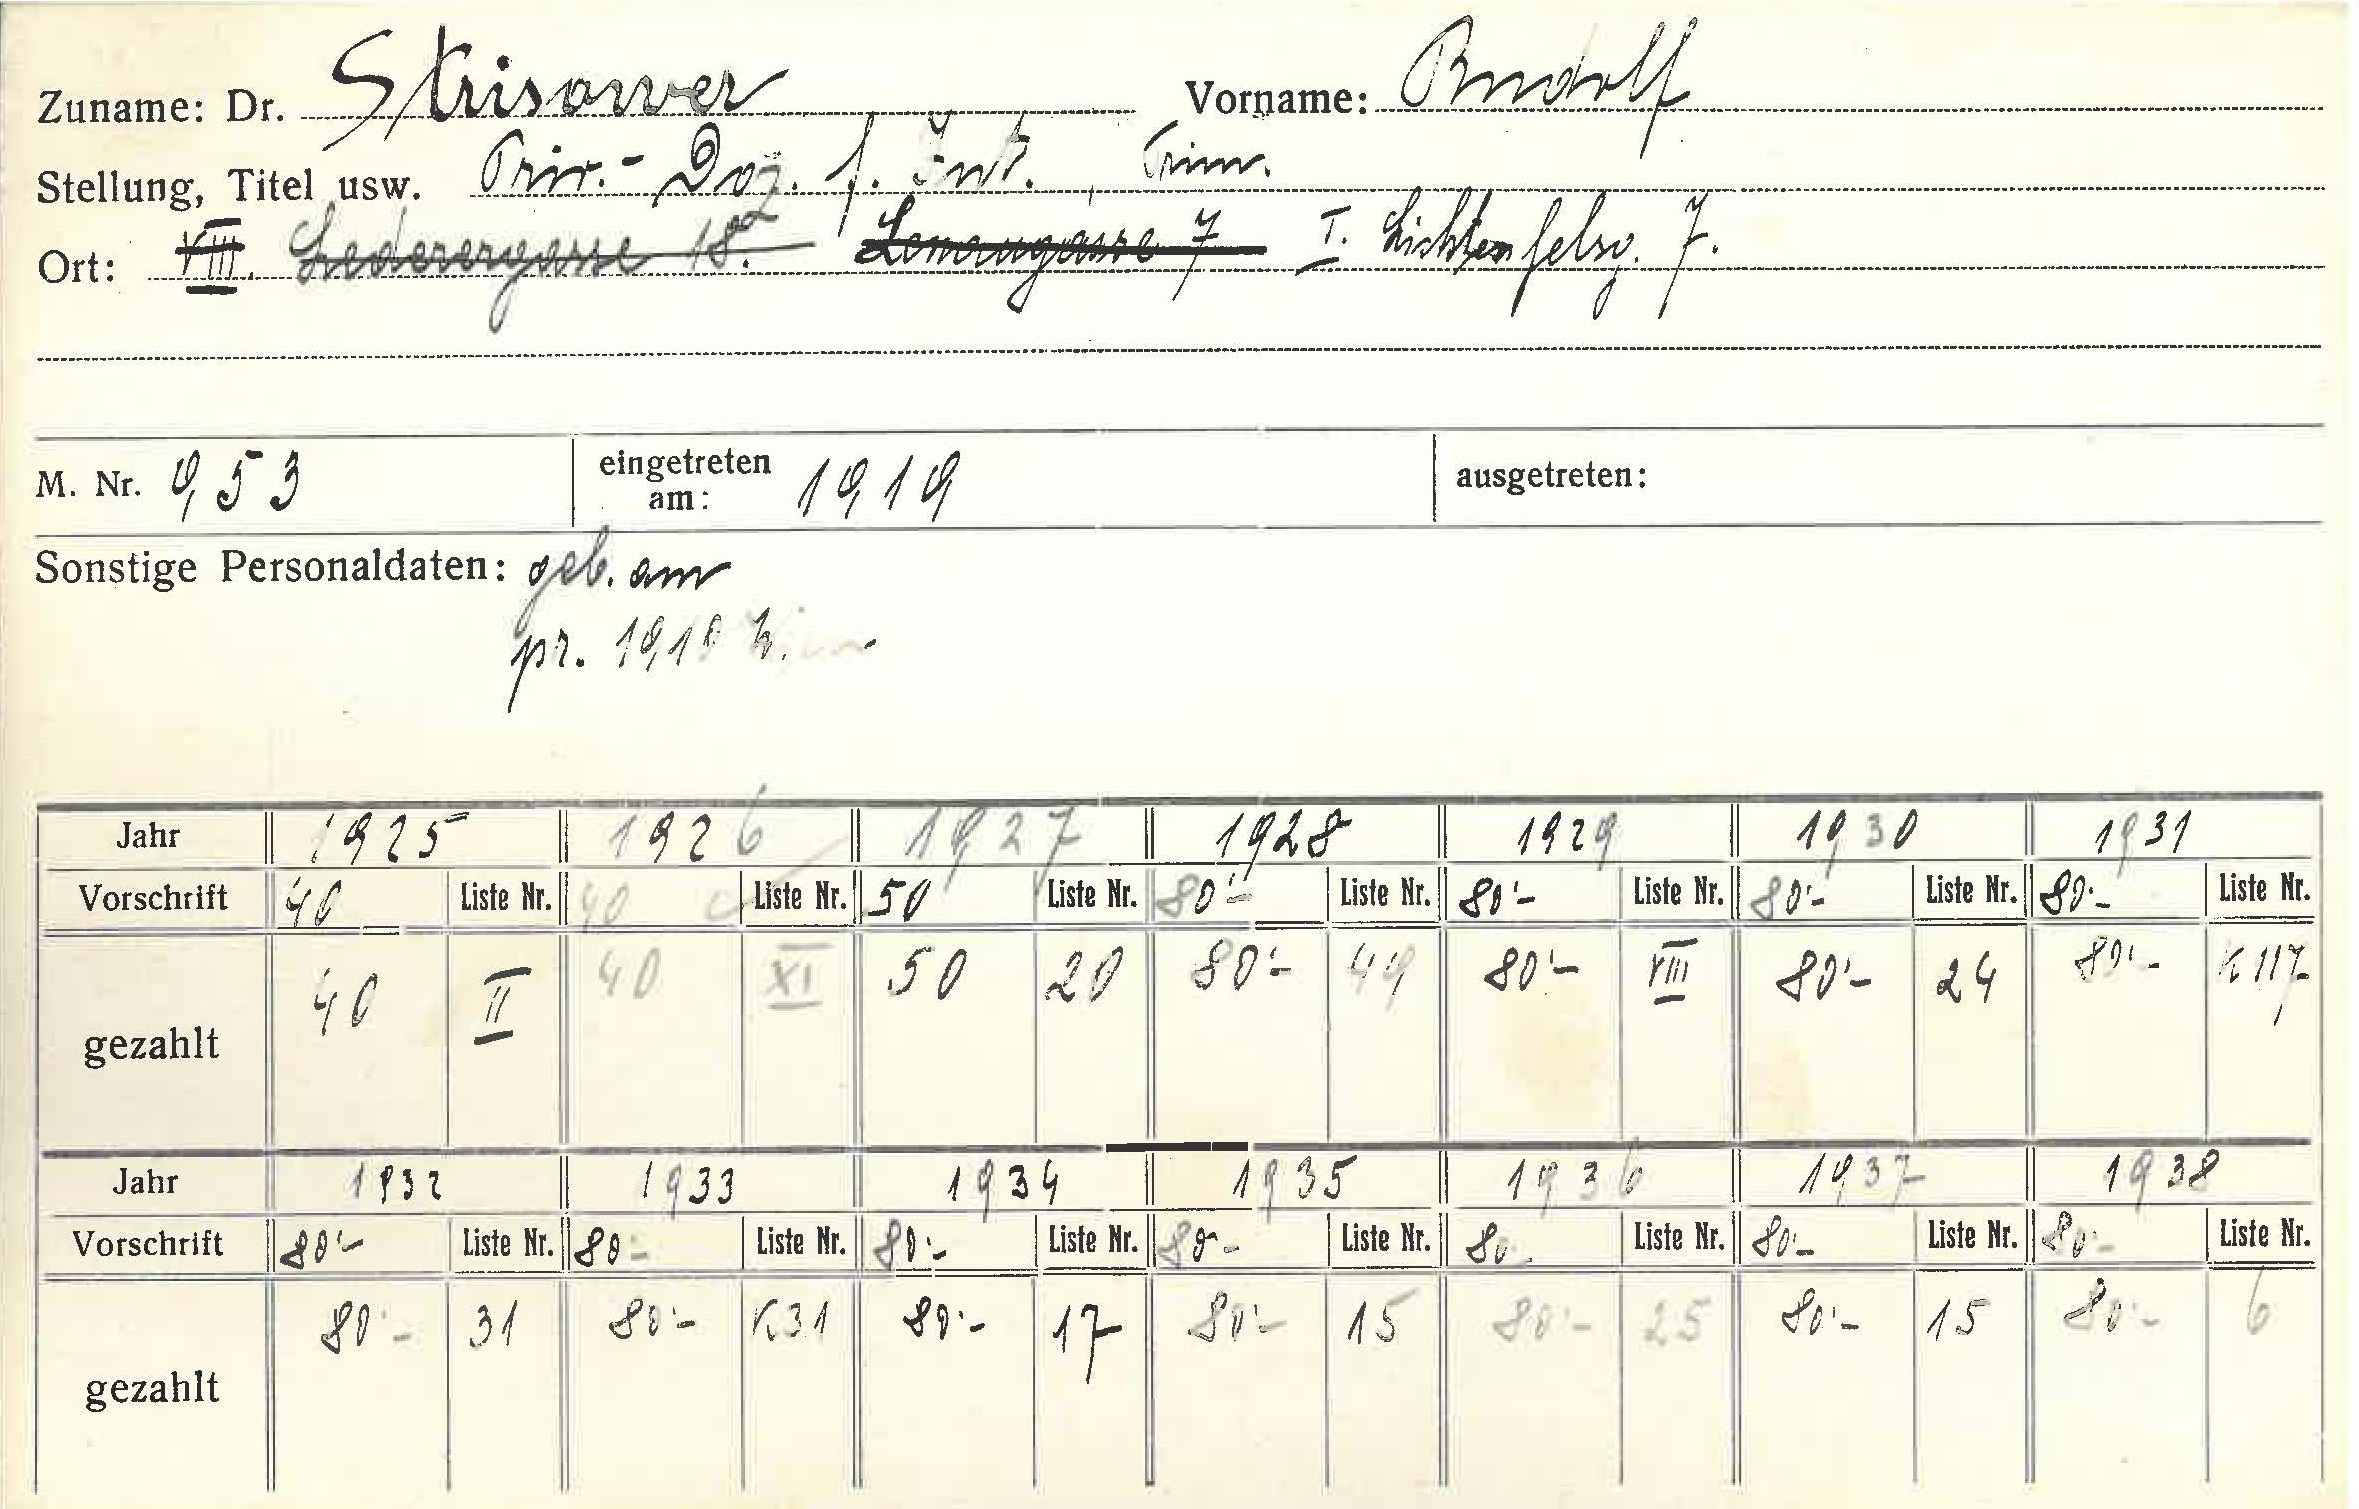 Zuname: Dr. Strisower Vorname: Rudolf
Stellung, Titel usw. Priv.-Doz. f. Int., Prim.
Ort: VIII. Lederergasse 18. Lenaugasse 7 I. Lichtenfelsg. 7.
M. Nr. 953 eingetreten am: 1919 ausgetreten:
Sonstige Personaldaten: geb. am
pr. 1910 Wien
Jahr 1925 1926 1927 1928 1929 1930 1931
Vorschrift 40 Liste Nr. 40 Liste Nr. 50 Liste Nr. 80'- Liste Nr. 80'- Liste Nr. 80'- Liste Nr. 80'- Liste Nr.
gezahlt 40 II 40 XI 50 20 80'- 49 80'- VIII 80'- 24 80'- K 117
Jahr 1932 1933 1934 1935 1936 1937 1938
Vorschrift 80'- Liste Nr. 80- Liste Nr. 80'- Liste Nr. 80'- Liste Nr. 80 Liste Nr. 80'- Liste Nr. 80'- Liste Nr.
gezahlt 80'- 31 80'- K31 80'- 17 80'- 15 80'- 25 80'- 15 80'- 6